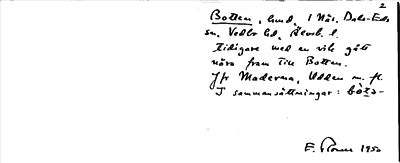 2
Botten, lund, i Näs, Dals-Eds
sn, Vedbo hd, Älvsb. l.
Tidigare med en vik gått
nära fram till Botten.
Jfr Maderna, Udden m. fl.
I sammansättningar: båtə-
E. 1950